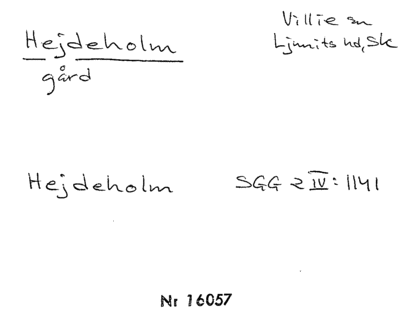 Hejdeholm
gård
Villie sn
Ljunits hd, Sk
Hejdeholm SGG 2 IV: 1141
Nr 16057